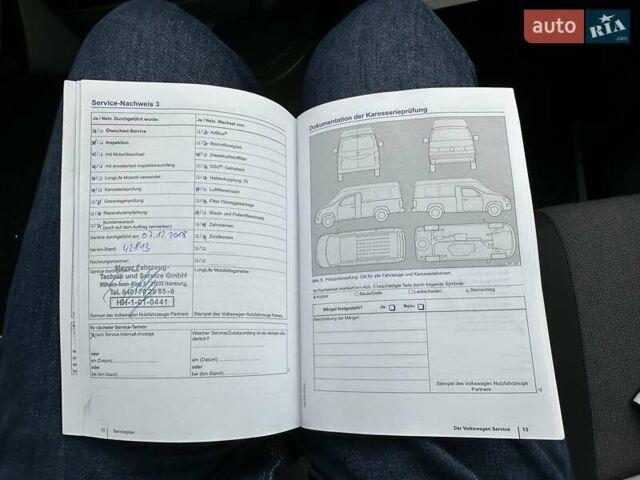 auto RIA.com
Service-Nachweis 3
Ja / Nein. Durchgeführt wurde:
Ölwechsel-Service
Inspektion
mit Motorölwechsel
mit erweitertem Inspektionsumfang
LongLife Motoröl verwendet
Karosserieprüfung
Gasanlagenprüfung
Reparaturempfehlung
Kundenwunsch
(auch auf dem Auftrag vermerken)
Service durchgeführt am: 07.12.2018
bei km-Stand: 42813
Rechnungsnummer:
Service durchgeführt
Mayer Fahrzeug-
Technik und Service GmbH
HH-1-01-0441
Stempel des Volkswagen Nutzfahrzeuge Partners
Ja / Nein. Wechsel von:
AdBlue®
Bremsflüssigkeit
Dieselkraftstofffilter
DSG®-Getriebeöl
Haldexkupplung: Öl
Luftfiltereinsatz
Filter Flüssiggasanlage
Staub- und Pollenfiltereinsatz
Zahnriemen
Zündkerzen
LongLife Mobilitätsgarantie:
Stempel des Volkswagen Nutzfahrzeuge Partners
Ihr nächster Service-Termin:
nach Service-Intervall-Anzeige
oder
am (Datum)
oder
bei (km-Stand)
Welcher Service/Zusatzumfang ist als nächstes erforderlich?
am (Datum)
oder
bei (km-Stand)
Serviceplan
Dokumentation der Karosserieprüfung
Abb. 5 Prinzipdarstellung: Gilt für alle Fahrzeuge und Karosserieformen.
Im Prüfbereich markiert in Abb. 5 beschädigte Teile durch folgende Symbole:
x Kratzer
Beule/Delle
Lackschaden
Steinschlag
Mängel festgestellt?
Ja:
Nein:
Beschreibung der Mängel:
Stempel des Volkswagen Nutzfahrzeuge
Partners
Der Volkswagen Service
13